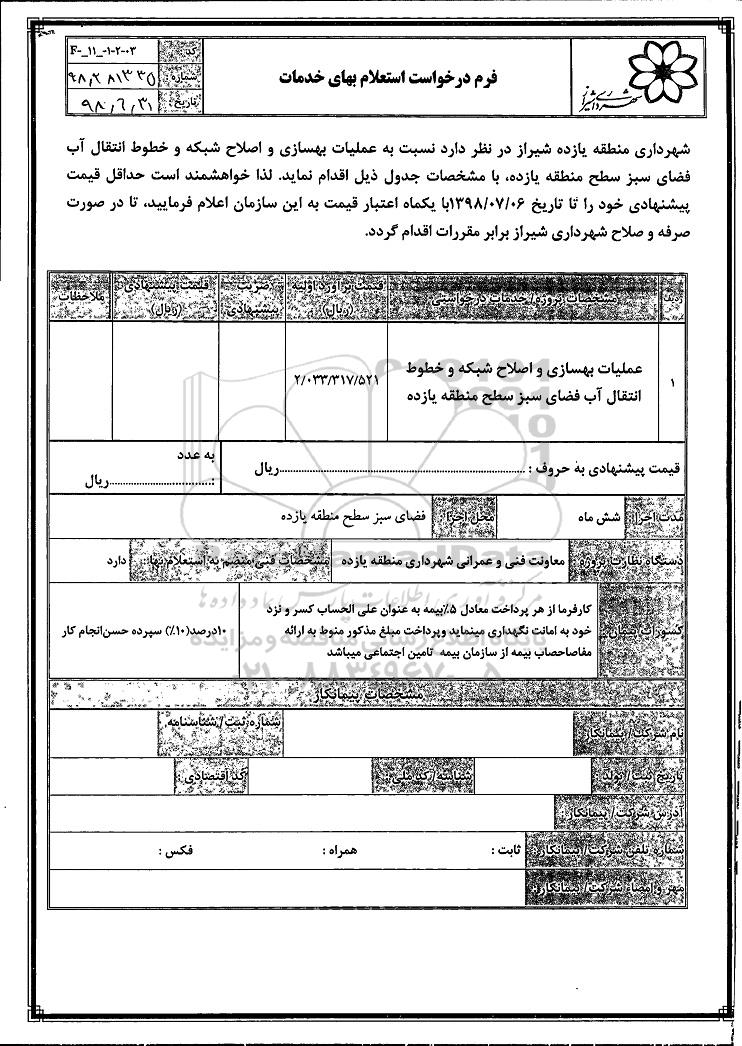 شهرداری شیراز
فرم درخواست استعلام بهای خدمات
کد : F-_۱۱_-۱-۲-۰۳
شماره : ۹۸,۲۸۱۳۳۵
تاریخ : ۹۸,۶,۳۱
شهرداری منطقه یازده شیراز در نظر دارد نسبت به عملیات بهسازی و اصلاح شبکه و خطوط انتقال آب
فضای سبز سطح منطقه یازده، با مشخصات جدول ذیل اقدام نماید. لذا خواهشمند است حداقل قیمت
پیشنهادی خود را تا تاریخ ۱۳۹۸/۰۷/۰۶با یکماه اعتبار قیمت به این سازمان اعلام فرمایید، تا در صورت
صرفه و صلاح شهرداری شیراز برابر مقررات اقدام گردد.
ردیف
مشخصات پروژه/ خدمات درخواستی
قیمت برآورد اولیه
(ریال)
ضریب
پیشنهادی
قیمت پیشنهادی
(ریال)
ملاحظات
۱
عملیات بهسازی و اصلاح شبکه و خطوط
انتقال آب فضای سبز سطح منطقه یازده
۲/۰۳۳/۳۱۷/۵۲۱
قیمت پیشنهادی به حروف : ........................................ریال
به عدد
:..................................ریال
مدت اجرا
شش ماه
محل اجرا
فضای سبز سطح منطقه یازده
دستگاه نظارت پروژه
معاونت فنی و عمرانی شهرداری منطقه یازده
مشخصات فنی منضم به استعلام بها:
دارد
کسورات پیمان
کارفرما از هر پرداخت معادل ۵٪بیمه به عنوان علی الحساب کسر و نزد
خود به امانت نگهداری مینماید وپرداخت مبلغ مذکور منوط به ارائه
مفاصاحصاب بیمه از سازمان بیمه تامین اجتماعی میباشد
۱۰درصد(۱۰٪) سپرده حسن‌انجام کار
مشخصات پیمانکار
نام شرکت/ پیمانکار
شماره ثبت/ شناسنامه
تاریخ ثبت/ تولد
شناسه/ کد ملی :
کد اقتصادی :
آدرس شرکت/ پیمانکار
شماره تلفن شرکت/ پیمانکار
ثابت :
همراه :
فکس :
مهر و امضاء شرکت/ پیمانکار:
ParsNamadData
مرکز فرآوری اطلاعات پارس نماد داده ها
۰۲۱-۸۸۳۴۹۶۷۰-۵